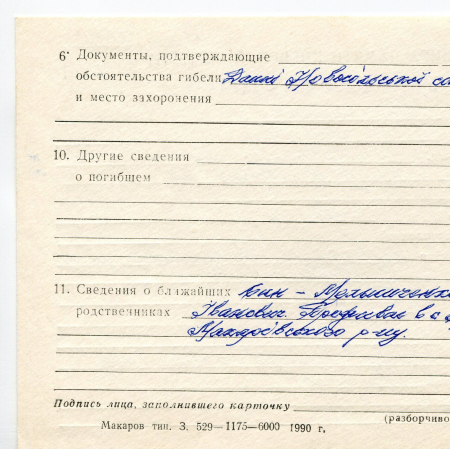 6. Документы, подтверждающие
обстоятельства гибели Данні Новосільської
и место захоронения
10. Другие сведения
о погибшем
11. Сведения о ближайших Син – Мельниченко
родственниках Іванович. Проживає в с.
Макарівського р-ну.
Подпись лица, заполнившего карточку
(разборчиво
Макаров тип. З. 529—1175—6000 1990 г.